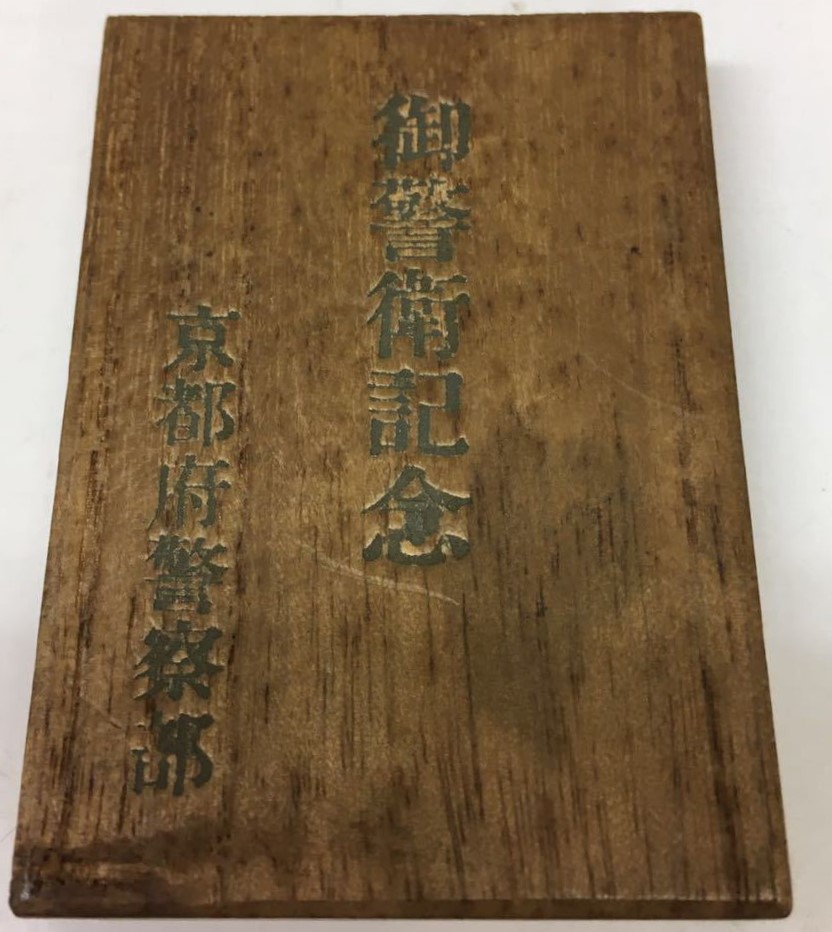 御警衛記念
京都府警察部